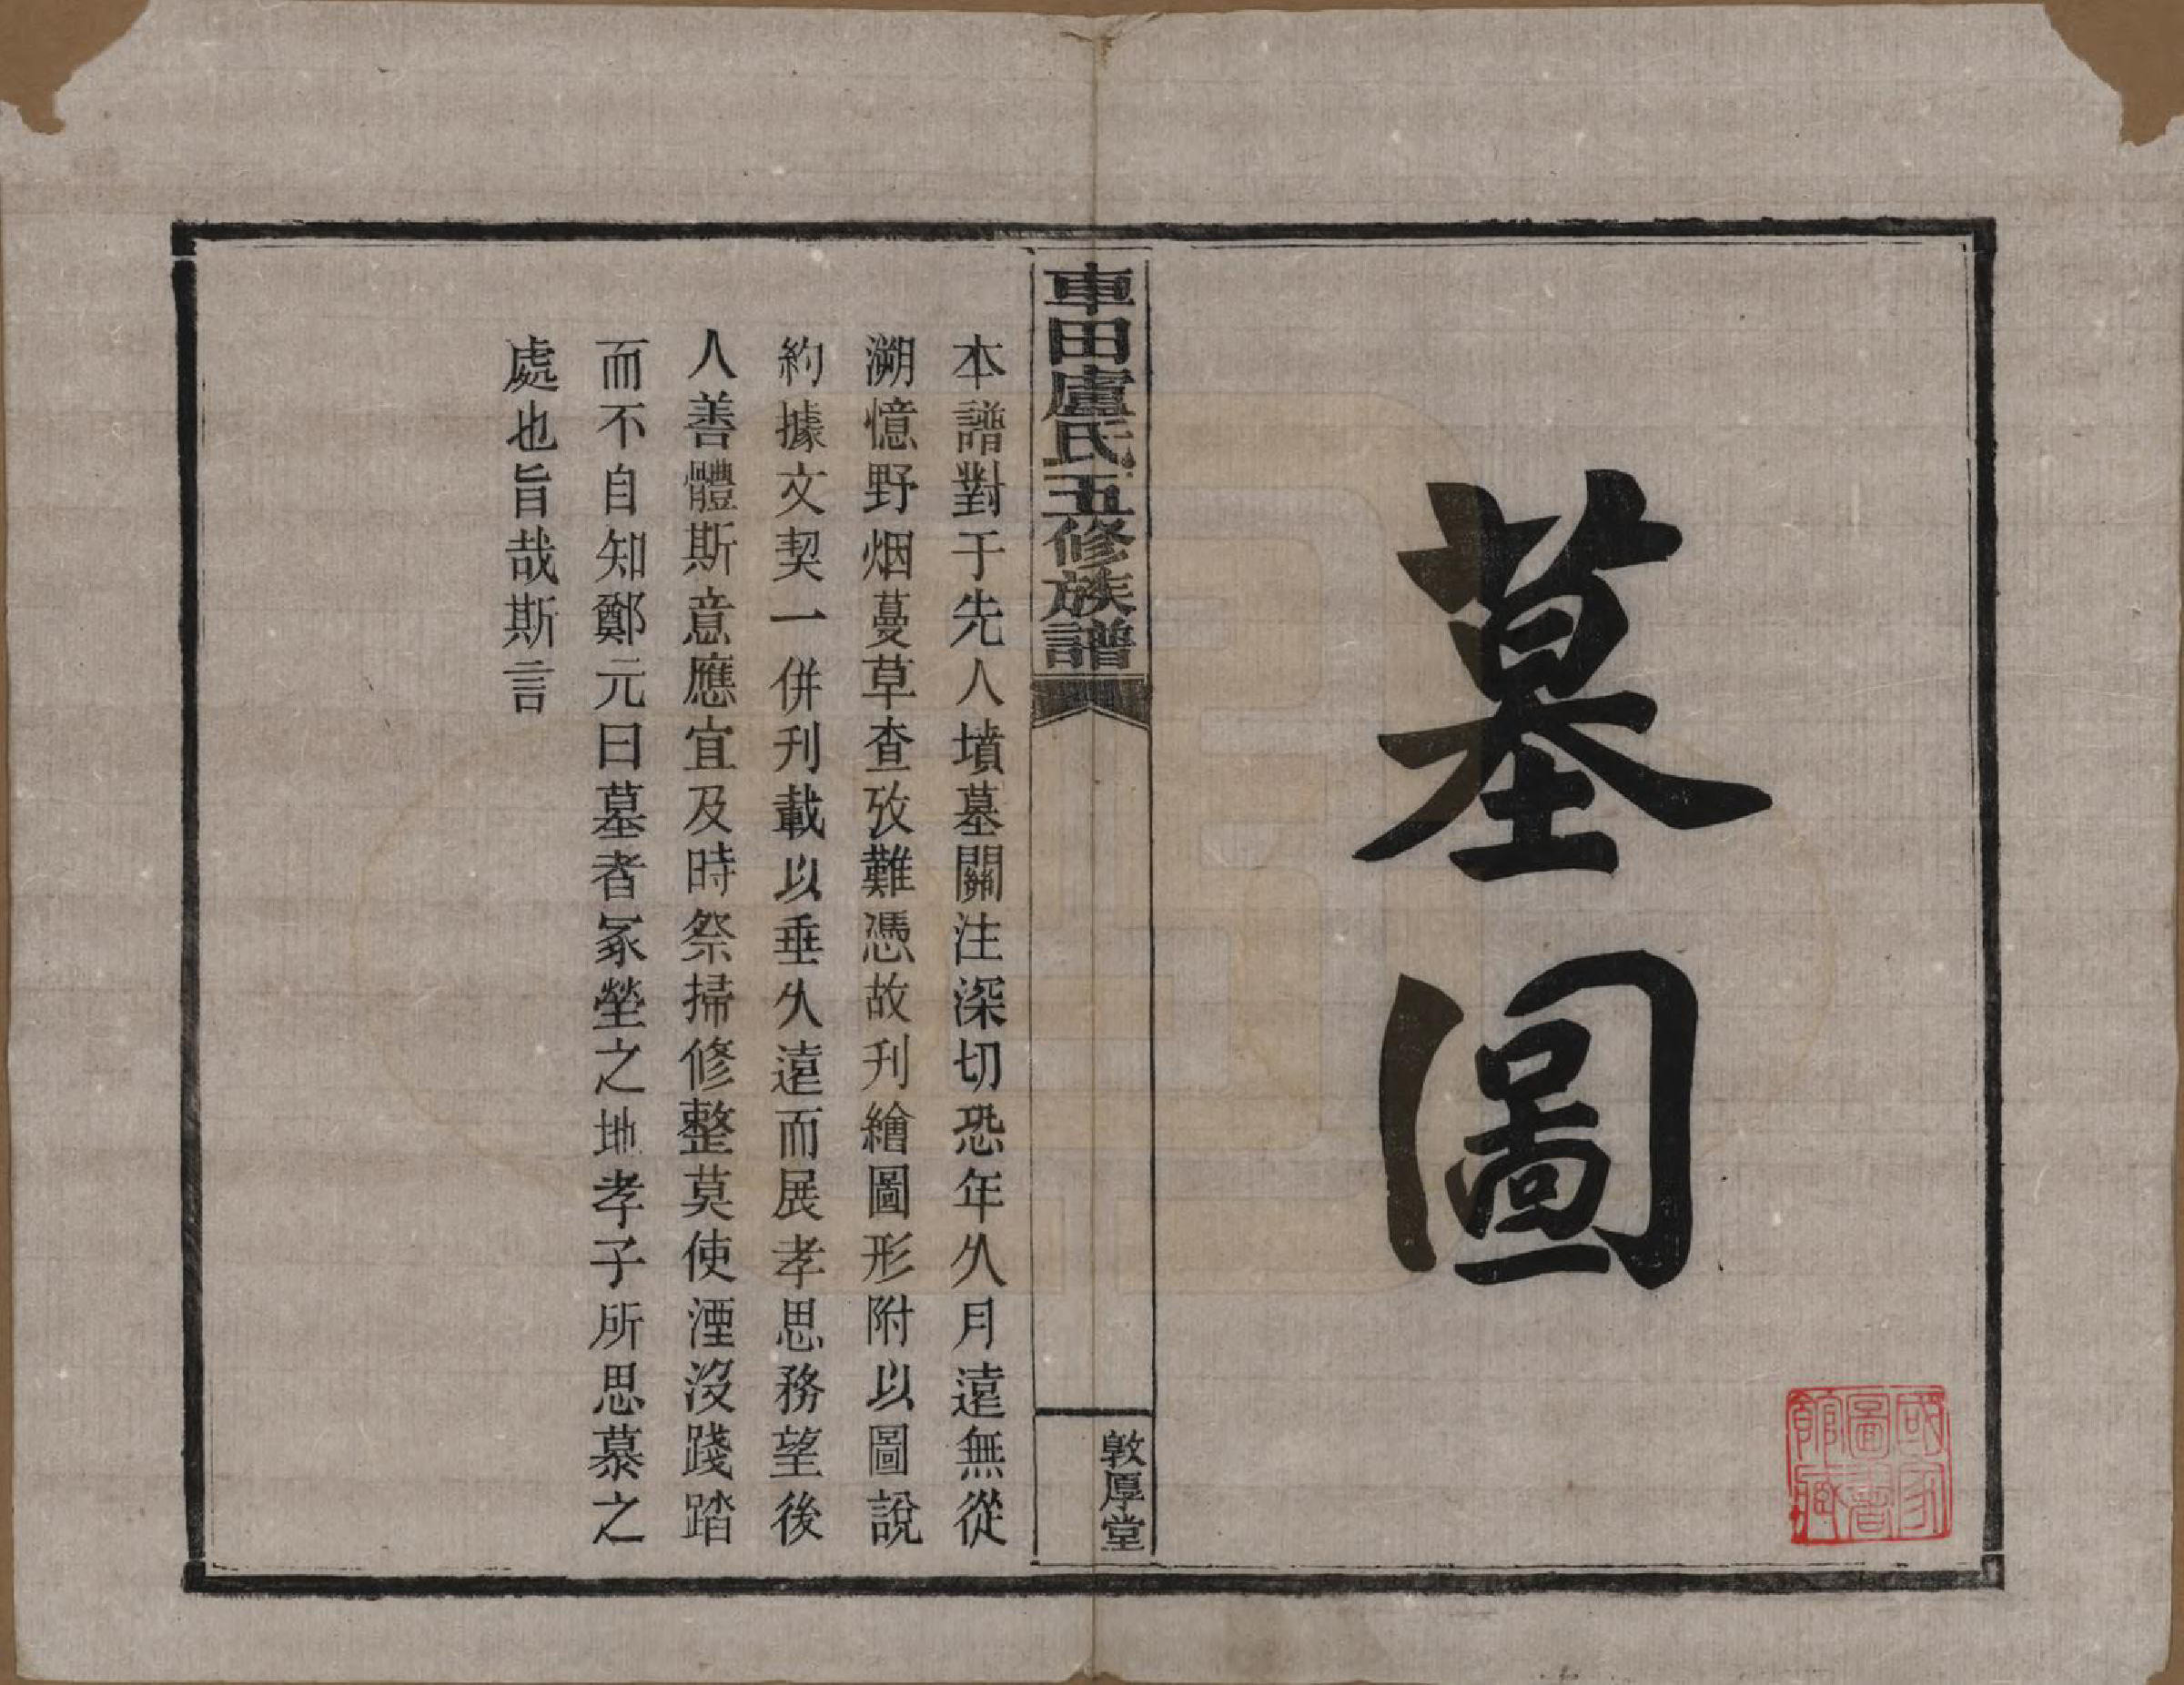 墓圖
國家圖書館藏
車田盧氏五修族譜
敦厚堂
本譜對于先人墳墓關注深切恐年久月遠無從
溯憶野烟蔓草查攷難憑故刋繪圖形附以圖說
約據文契一併刋載以垂久遠而展孝思務望後
人善體斯意應宜及時祭掃修整莫使湮沒踐踏
而不自知鄭元曰墓者冢塋之地孝子所思慕之
處也旨哉斯言